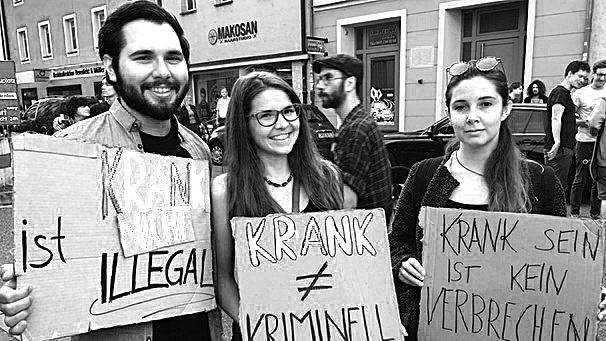 MAKOSAN
HAARSTUDIO
KRANK
ist
ILLEGAL
KRANK
≠
KRIMINELL
KRANK SEIN
IST KEIN
VERBRECHEN